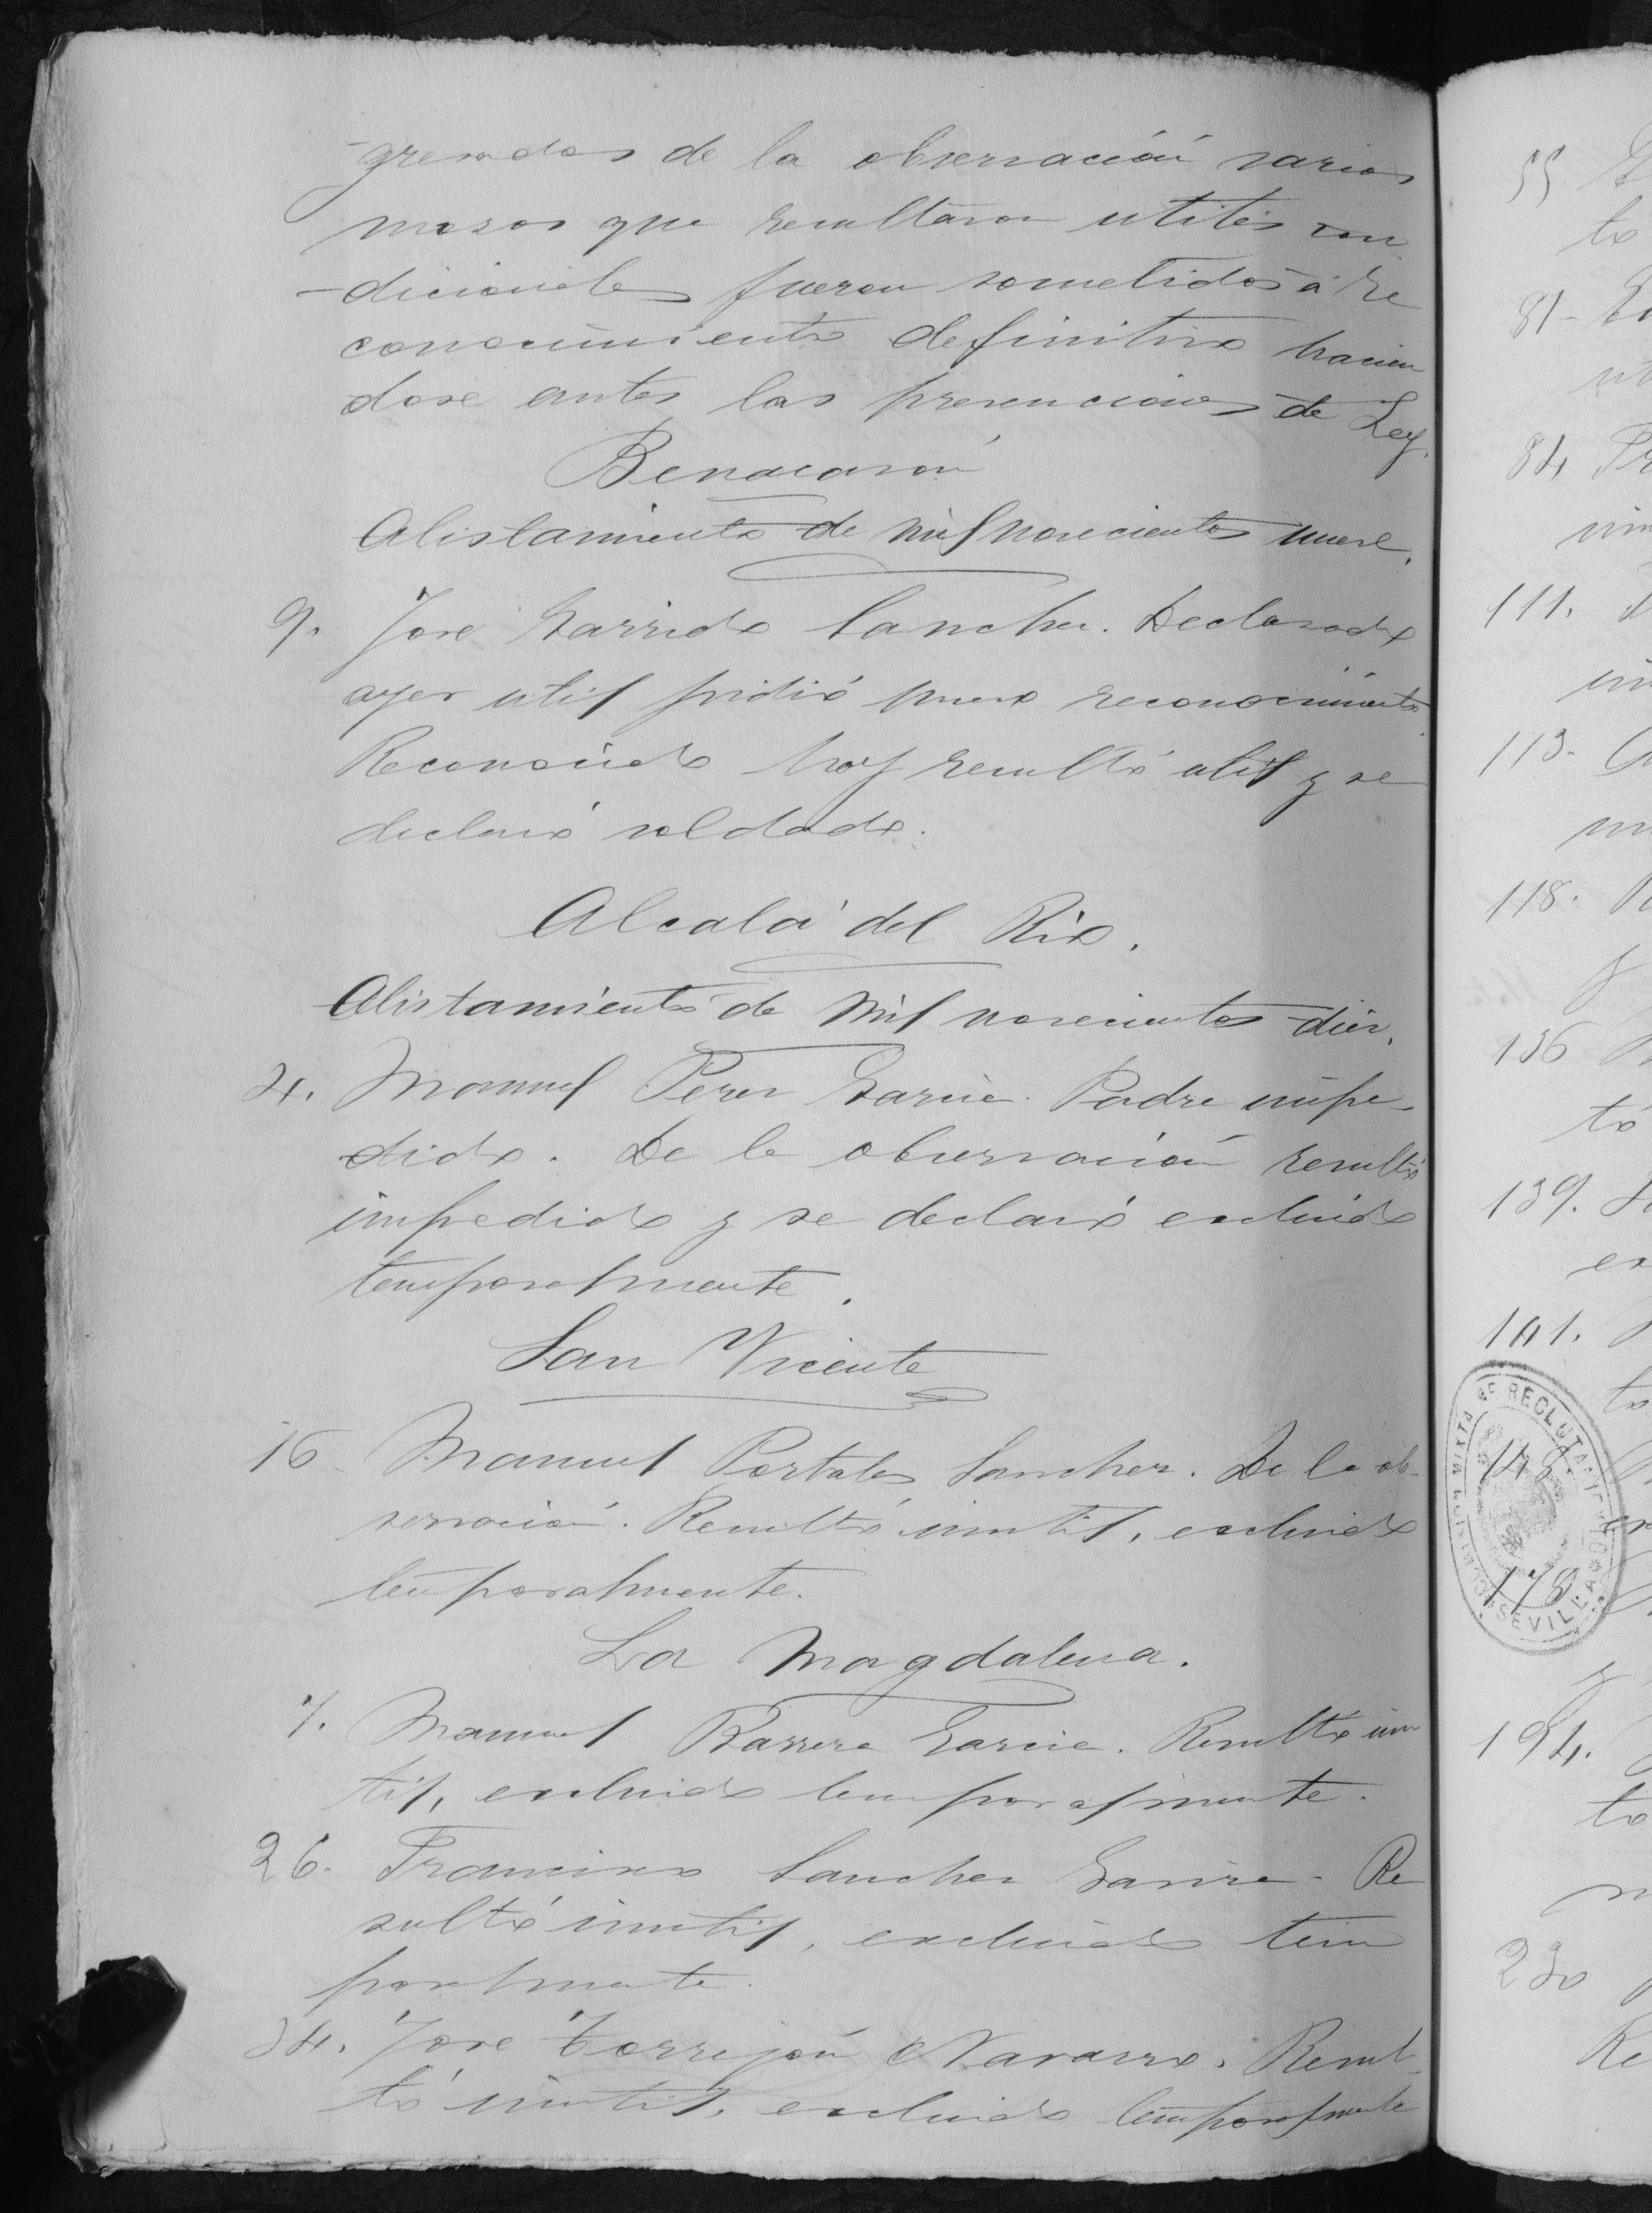 gresados de la observación varios
mozos que resultaron utiles con
-dicionales fueron sometidos á re
conocimiento definitivo hacien
dose antes las prevenciones de Ley.
Benacazón
Alistamiento de mil novecientos nueve.
9. José Garrido Sanchez. Declarado
ayer util pidió nuevo reconocimiento.
Reconocido hoy resultó util y se
declaró soldado.
Alcalá del Rio.
Alistamiento de mil novecientos diez.
4. Manuel Perez Garcia. Padre impe-
dido. De la observación resultó
impedido y se declaró excluido
temporalmente.
San Vicente
16 Manuel Portales Sanchez. De la ob-
servación. Resultó inutil, excluido
temporalmente.
La Magdalena.
7. Manuel Barrera Garcia. Resultó inu
til, excluido temporalmente.
26. Francisco Sanchez Garcia - Re
sultó inutil, excluido tem
poralmente.
34. José Torrejón Navarro. Resul-
tó inutil, excluido temporalmente
55
to
81-
84
111.
113-
118.
136
to
139.
141.
MIXTA DE RECLUTAMIENTO
SEVILLA
148
178
194.
to
230
Re